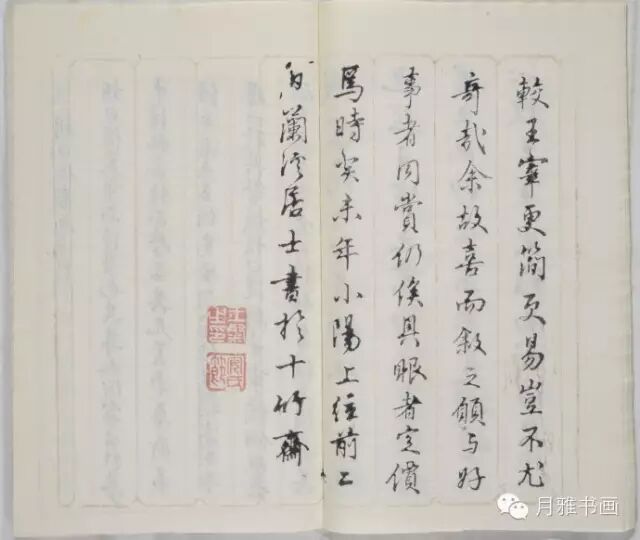 較王宰更簡更易豈不尤
奇哉余故喜而敘之願与好
事者同賞仍俟具眼者定價
焉時癸未年小陽上浣前二
日蘭溪居士書於十竹齋
月雅书画